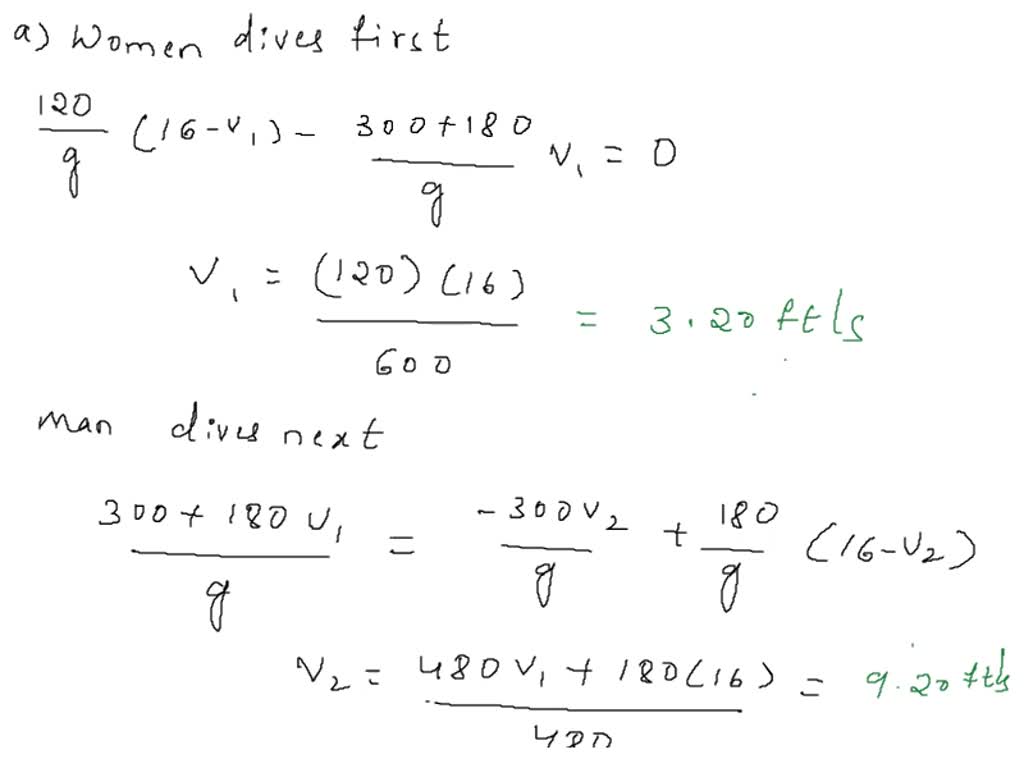 a) Women dives first
120/g (16-v₁) - 300+180/g v₁ = 0
v₁ = (120)(16)/600 = 3.20 ft/s
man dives next
300+180 v₁/g = -300v₂/g + 180/g (16-v₂)
v₂ = 480v₁ + 180(16)/480 = 9.20 ft/s